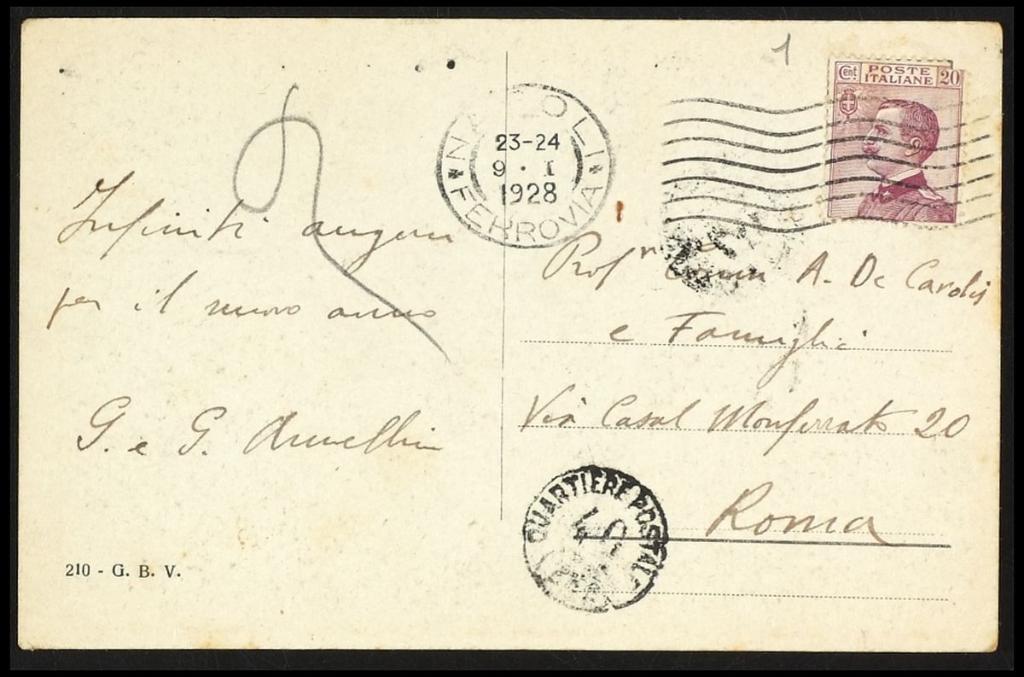 1
Cent. POSTE ITALIANE 20
NAPOLI FERROVIA
23-24
9 · I
1928
Infiniti auguri
per il nuovo anno
G. e G.
Prof A. De Carolis
e Famiglia
Via Casal Monferrato 20
Roma
QUARTIERE POSTALE
40
210 - G. B. V.